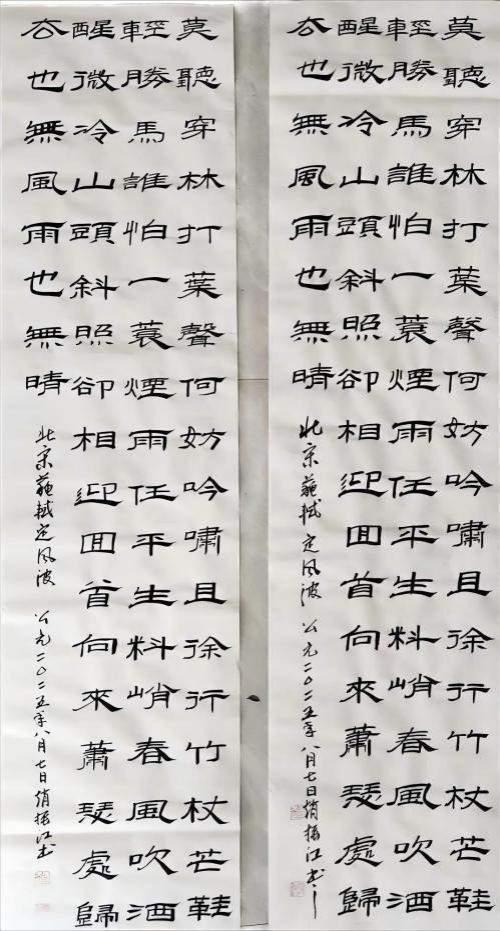 莫聽穿林打葉聲何妨吟嘯且徐行竹杖芒鞋
輕勝馬誰怕一蓑煙雨任平生料峭春風吹酒
醒微冷山頭斜照卻相迎回首向來蕭瑟處歸
去也無風雨也無晴
北宋蘇軾定风波 公元二〇二五年八月七日趙振江书
莫聽穿林打葉聲何妨吟嘯且徐行竹杖芒鞋
輕勝馬誰怕一蓑煙雨任平生料峭春風吹酒
醒微冷山頭斜照卻相迎回首向來蕭瑟處歸
去也無風雨也無晴
北宋蘇軾定风波 公元二〇二五年八月七日趙振江书